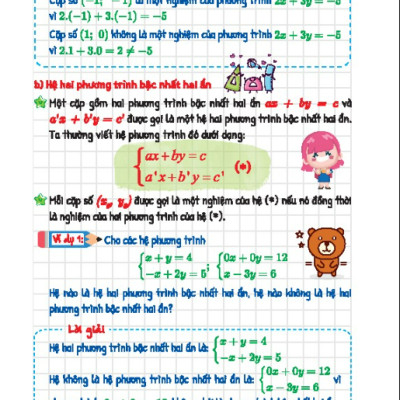 Cặp số (−1; −1) là một nghiệm của phương trình 2x + 3y = −5
vì 2.(−1) + 3.(−1) = −5
Cặp số (1; 0) không là một nghiệm của phương trình 2x + 3y = −5
vì 2.1 + 3.0 = 2 ≠ −5
b) Hệ hai phương trình bậc nhất hai ẩn
Một cặp gồm hai phương trình bậc nhất hai ẩn ax + by = c và
a'x + b'y = c' được gọi là một hệ hai phương trình bậc nhất hai ẩn.
Ta thường viết hệ phương trình đó dưới dạng:
{ax + by = c
a'x + b'y = c' (*)
Mỗi cặp số (x₀, y₀) được gọi là một nghiệm của hệ (*) nếu nó đồng thời
là nghiệm của hai phương trình của hệ (*).
Ví dụ 1: Cho các hệ phương trình
{x + y = 4 {0x + 0y = 12
−x + 2y = 5; x − 3y = 6
Hệ nào là hệ hai phương trình bậc nhất hai ẩn, hệ nào không là hệ hai
phương trình bậc nhất hai ẩn?
Lời giải
Hệ hai phương trình bậc nhất hai ẩn là: {x + y = 4
−x + 2y = 5
Hệ không là hệ phương trình bậc nhất hai ẩn là: {0x + 0y = 12
x − 3y = 6 vì